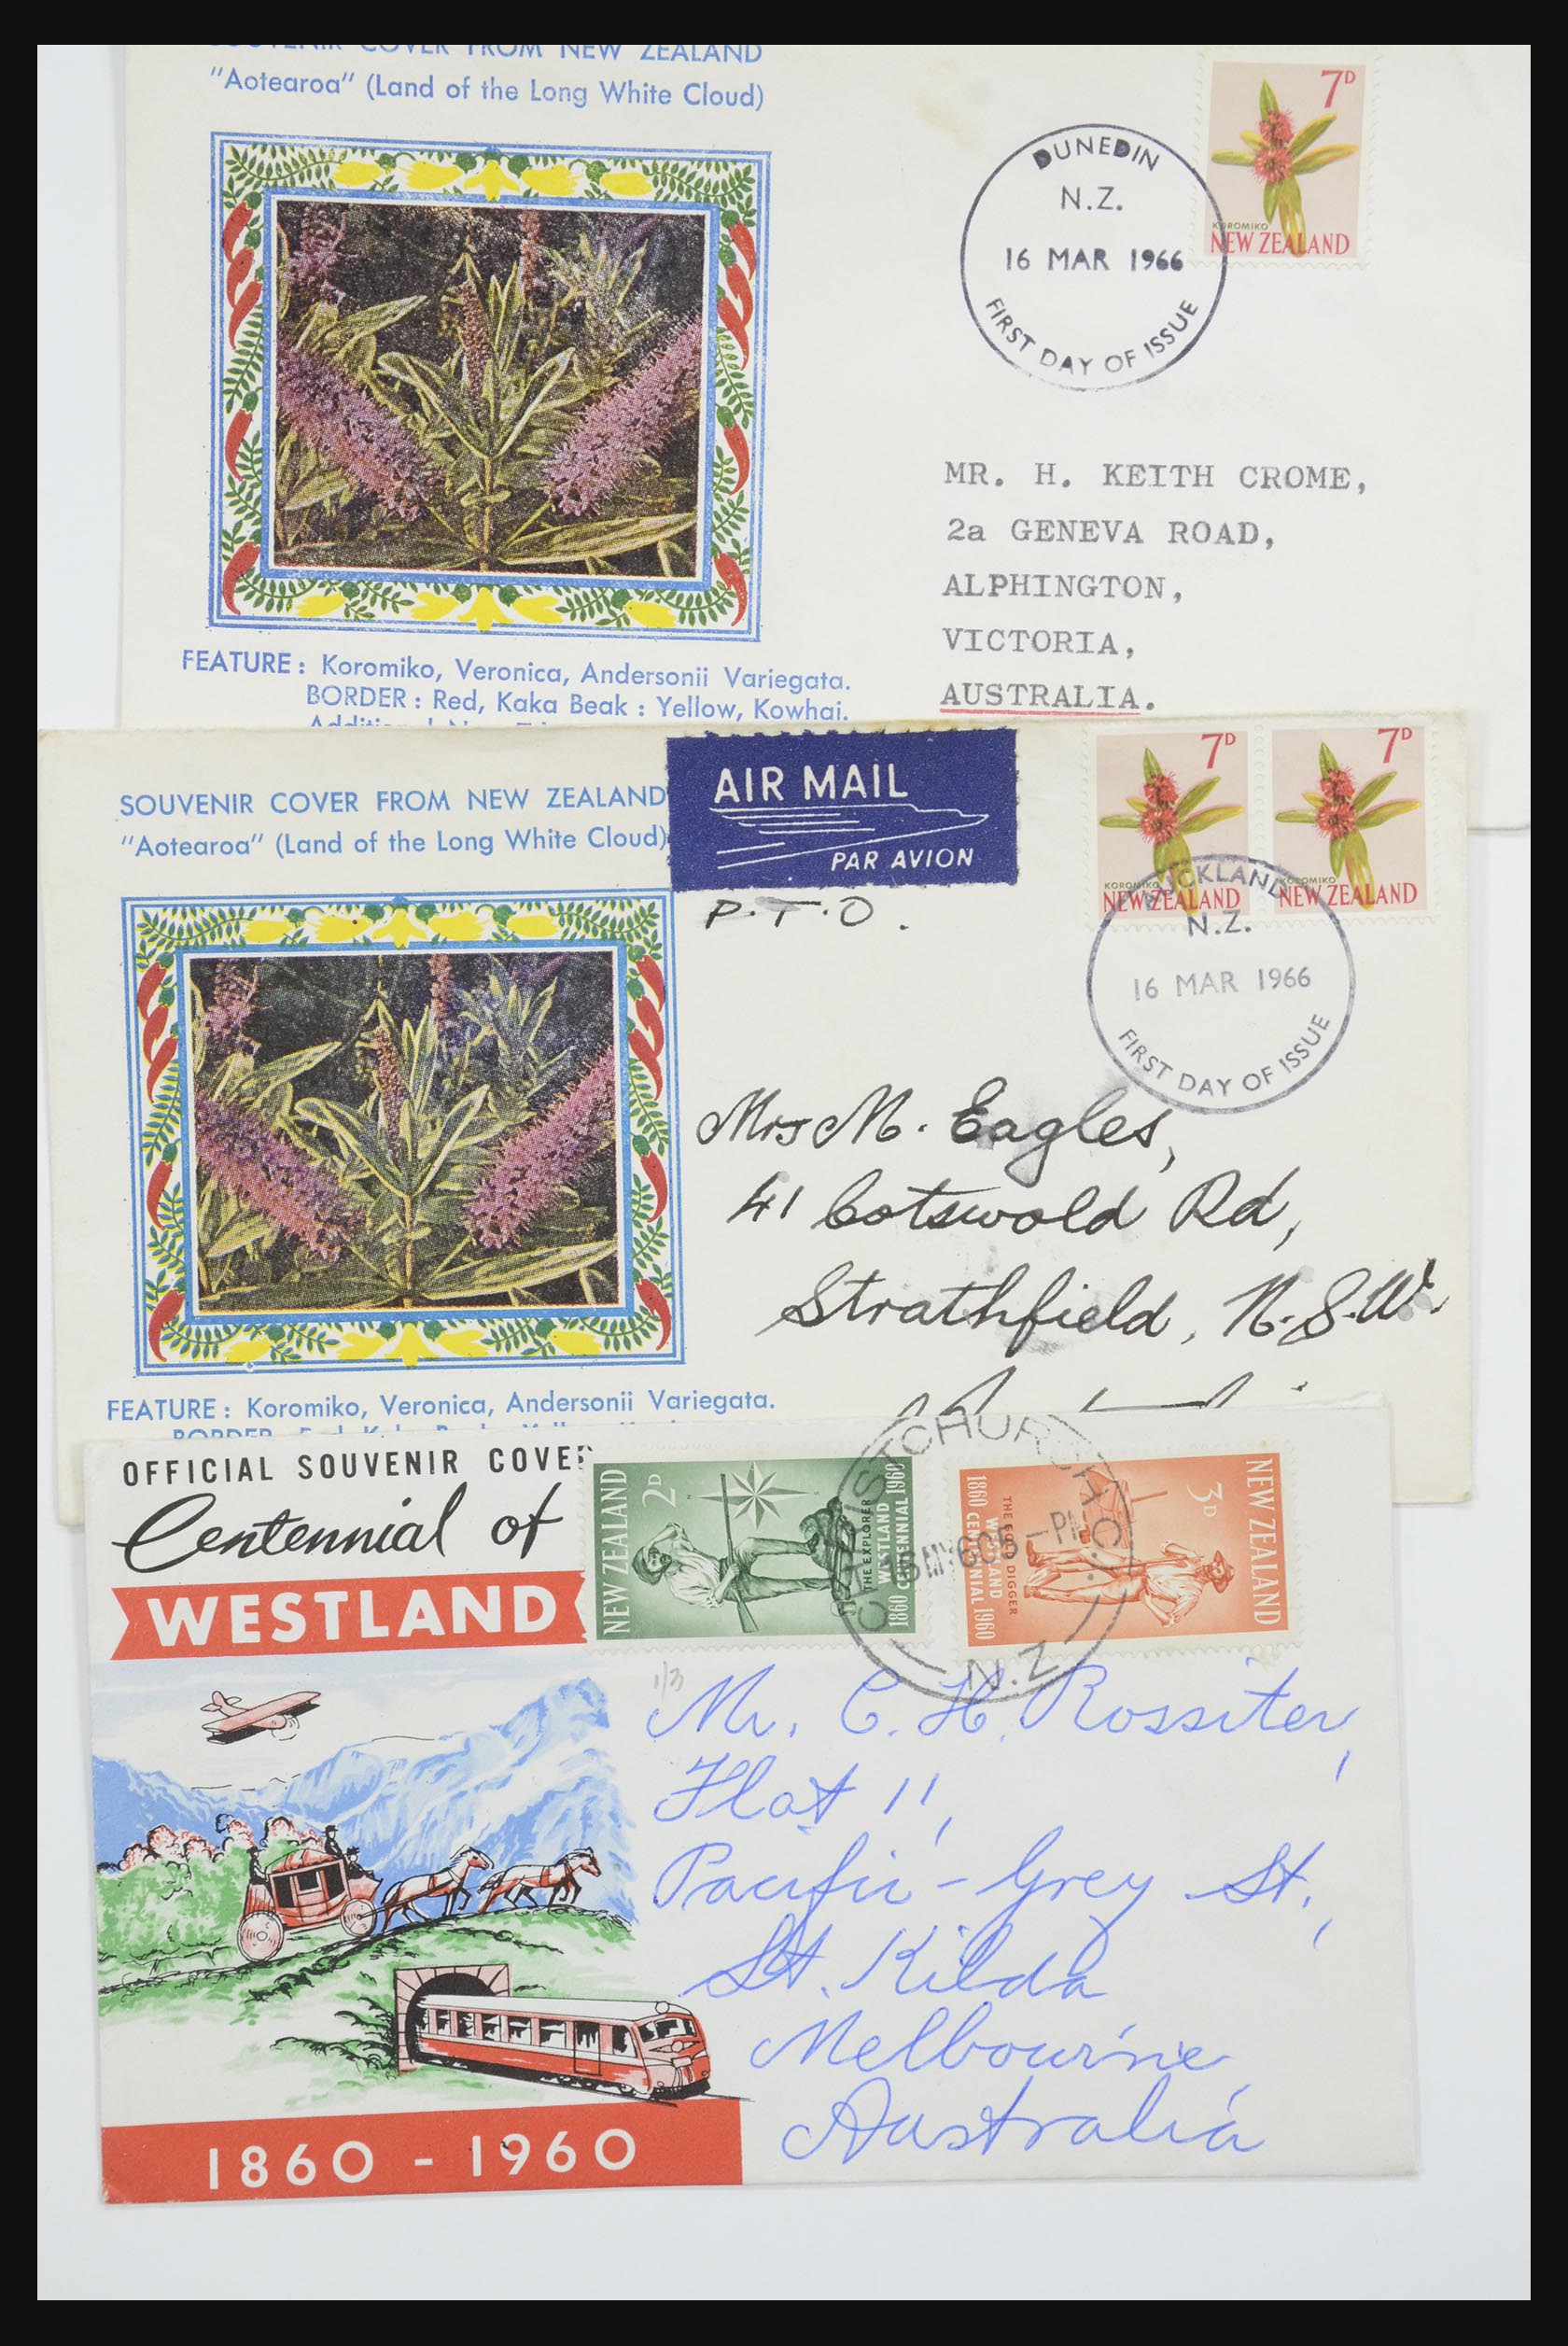 SOUVENIR COVER FROM NEW ZEALAND
"Aotearoa" (Land of the Long White Cloud)
7D
KOROMIKO
NEW ZEALAND
DUNEDIN
N.Z.
16 MAR 1966
FIRST DAY OF ISSUE
MR. H. KEITH CROME,
2a GENEVA ROAD,
ALPHINGTON,
VICTORIA,
AUSTRALIA.
FEATURE: Koromiko, Veronica, Andersonii Variegata.
BORDER: Red, Kaka Beak: Yellow, Kowhai.
SOUVENIR COVER FROM NEW ZEALAND
"Aotearoa" (Land of the Long White Cloud)
AIR MAIL
PAR AVION
P.T.O.
7D
KOROMIKO
NEW ZEALAND
7D
KOROMIKO
NEW ZEALAND
AUCKLAND
N.Z.
16 MAR 1966
FIRST DAY OF ISSUE
Mrs M. Eagles,
41 Cotswold Rd,
Strathfield, N.S.W.
FEATURE: Koromiko, Veronica, Andersonii Variegata.
OFFICIAL SOUVENIR COVER
Centennial of
WESTLAND
NEW ZEALAND
2D
THE EXPLORER
WESTLAND
1860 CENTENNIAL 1960
NEW ZEALAND
3D
THE GOLD DIGGER
WESTLAND
1860 CENTENNIAL 1960
CHRISTCHURCH
N.Z
1/3
Mr. C. H. Rossiter,
Flat 11,
Pacific - Grey St.,
St. Kilda
Melbourne,
Australia
1860 - 1960